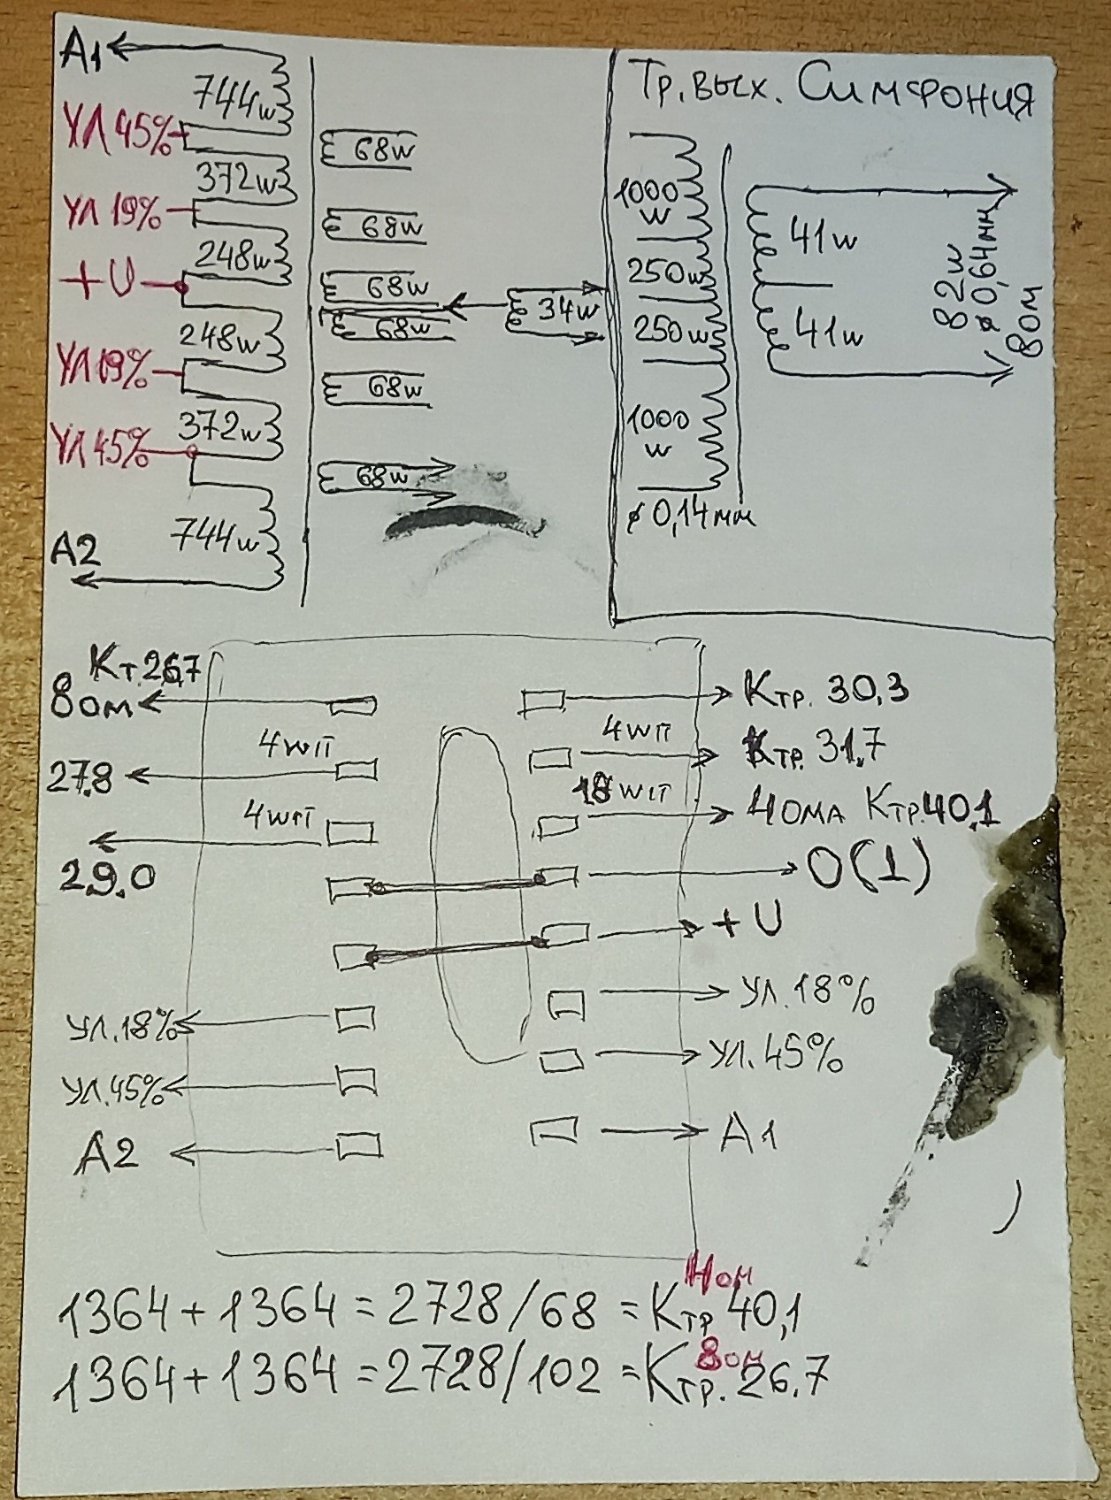 А1
744w
УЛ 45%
372w
УЛ 19%
248w
+U
248w
УЛ 19%
372w
УЛ 45%
744w
А2
68w
68w
68w
68w
68w
68w
34w
Тр. вых. Симфония
1000
w
250w
250w
1000
w
ø 0,14мм
41w
41w
82w
ø 0,64мм
8ом
Кт.26,7
8ом
4wп
27.8
4wп
29.0
Ул.18%
Ул.45%
А2
Ктр. 30,3
4wп
Ктр. 31.7
18wп
4ома Ктр.40,1
0(1)
+U
Ул.18%
Ул.45%
А1
4ом
1364+1364=2728/68=Ктр 40,1
8ом
1364+1364=2728/102=Ктр. 26.7